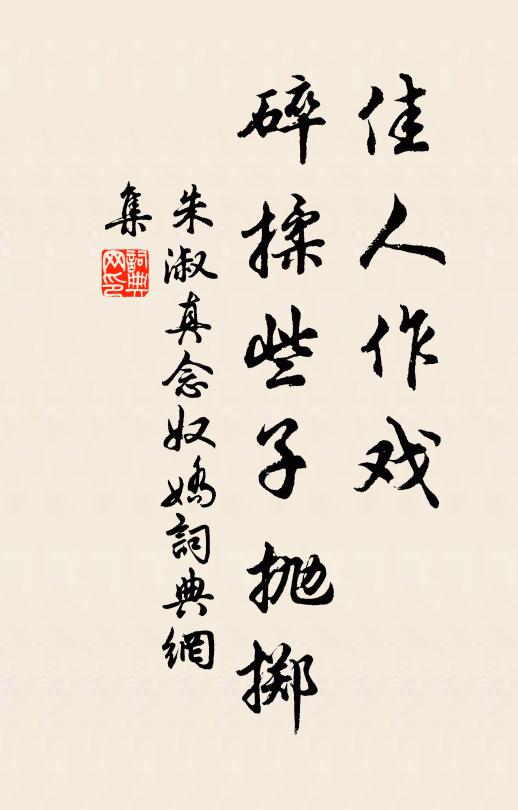 佳人作戏
碎揉些子抛掷
朱淑真念奴娇詞典網
集
詞典
网印